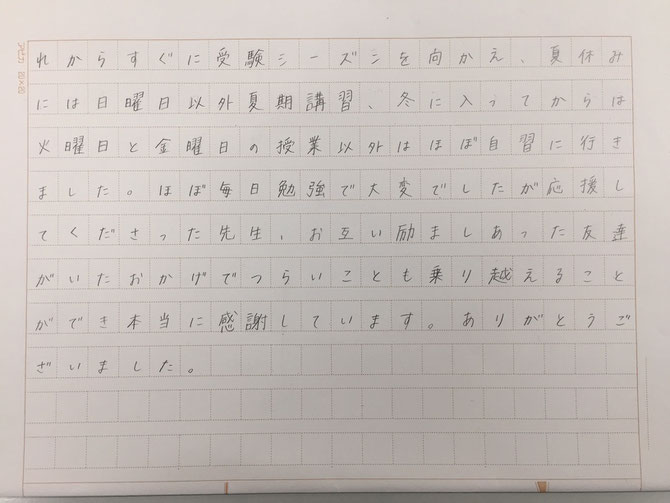 れからすぐに受験シーズンを向かえ、夏休み
には日曜日以外夏期講習、冬に入ってからは
火曜日と金曜日の授業以外はほぼ自習に行き
ました。ほぼ毎日勉強で大変でしたが応援し
てくださった先生、お互い励ましあった友達
がいたおかげでつらいことも乗り越えること
ができ本当に感謝しています。ありがとうご
ざいました。